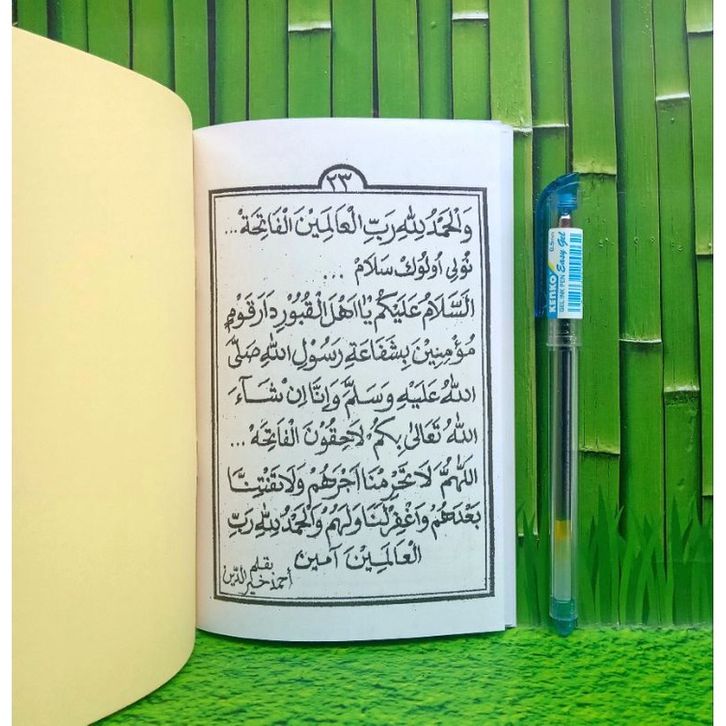 ٢٣
وَالْحَمْدُ لِلّٰهِ رَبِّ الْعَالَمِيْنَ الْفَاتِحَةْ ...
نُوْلِى اُوْلُوْكْ سَلَامْ ...
اَلسَّلَامُ عَلَيْكُمْ يَااَهْلَ الْقُبُوْرِ دَارَ قَوْمٍ
مُؤْمِنِيْنَ بِشَفَاعَةِ رَسُوْلِ اللّٰهِ صَلَّى
اللّٰهُ عَلَيْهِ وَسَلَّمَ وَاِنَّا اِنْ شَآءَ
اللّٰهُ تَعَالٰى بِكُمْ لَاحِقُوْنَ الْفَاتِحَهْ ...
اَللّٰهُمَّ لَا تَحْرِمْنَا اَجْرَهُمْ وَلَا تَفْتِنَّا
بَعْدَهُمْ وَاغْفِرْ لَنَا وَلَهُمْ وَالْحَمْدُ لِلّٰهِ رَبِّ
الْعَالَمِيْنَ آمين
بقلم
أحمد خير الدّين
KENKO Easy Gel 0.5mm
GEL INK PEN